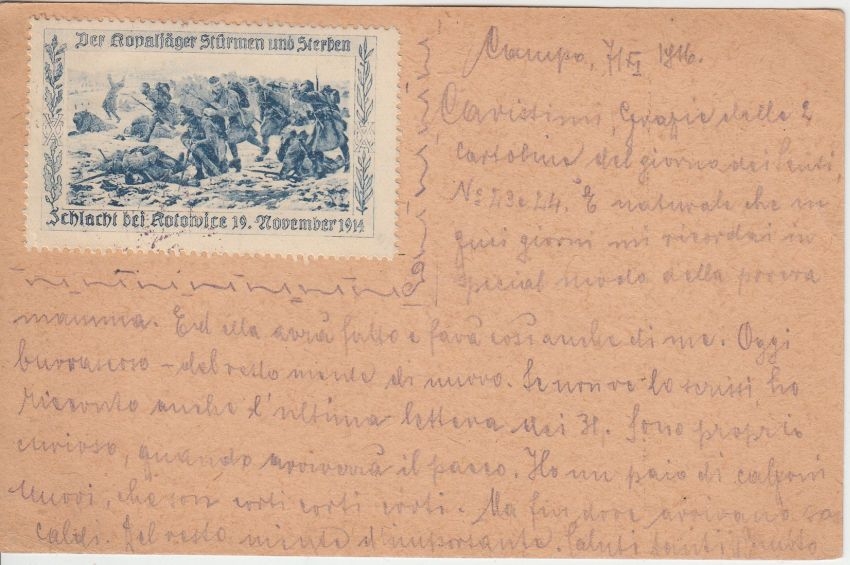 Der Kopaljäger Stürmen und Sterben
Schlacht bei Kotowice 19. November 1914
Campo, 7/XI 1916.
Carissimi, Grazie delle 2
cartoline del giorno dei Santi,
No 23 e 24. È naturale che in
quei giorni mi ricordai in
special modo della povera
mamma. Ed ella avrà fatto e farà così anche di me. Oggi
burrascoso - del resto niente di nuovo. Se non ve lo scrissi, ho
ricevuto anche l'ultima lettera dei 31. Sono proprio
curioso, quando arriverà il pacco. Ho un paio di calzoni
nuovi, che son corti corti corti. Ma fin dove arrivano
caldi. Del resto niente d'importante. Saluti tanti